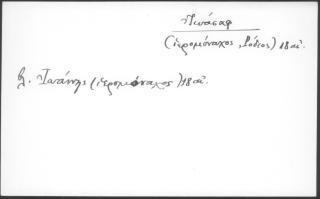 Ἰωάσαφ
(ἱερομόναχος, Ρόδιος) 18 αἰ.
βλ. Ἰωάννης (ἱερομόναχος) 18 αἰ.